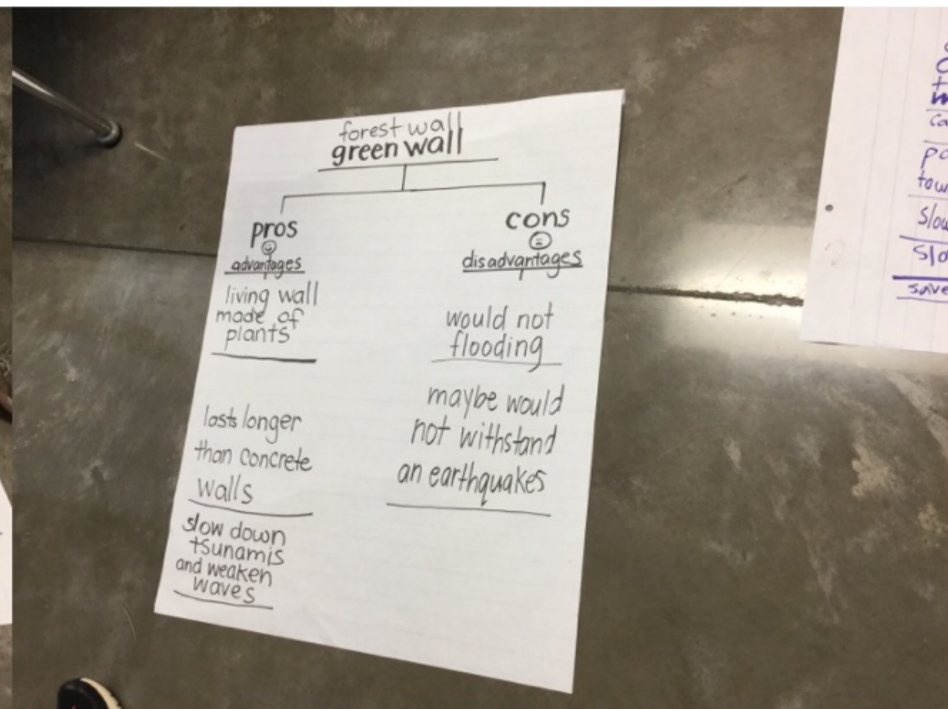 forest wall
green wall
pros
advantages
living wall
made of
plants
lasts longer
than concrete
walls
slow down
tsunamis
and weaken
waves
cons
disadvantages
would not
flooding
maybe would
not withstand
an earthquakes
slow